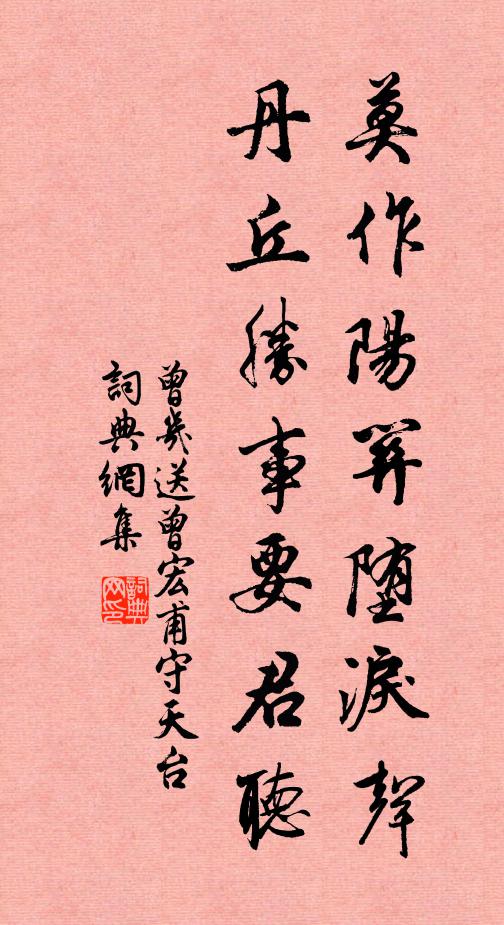 莫作陽關墮淚聲
丹丘勝事要君聽
曾幾送曾宏甫守天台
詞典網集
詞典网印